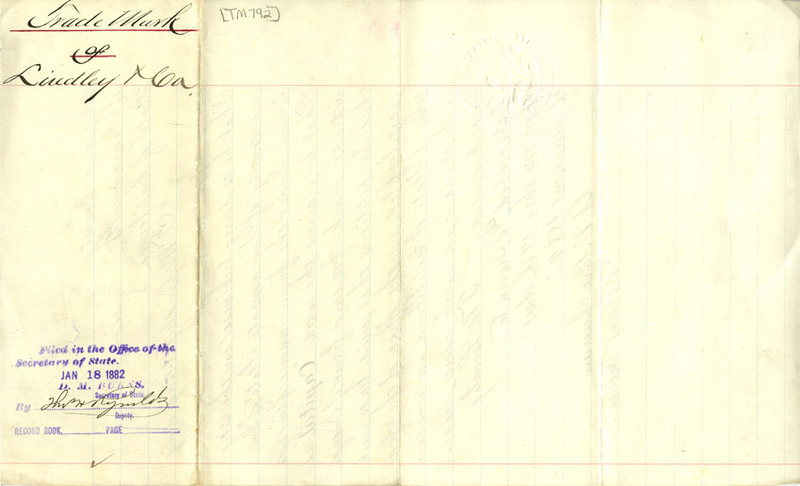 Trade Mark
of
Lindley & Co.
[TM792]
Filed in the Office of the
Secretary of State.
JAN 18 1882
D. M. BURNS.
Secretary of State.
By Thos H Reynolds
Deputy.
RECORD BOOK. PAGE